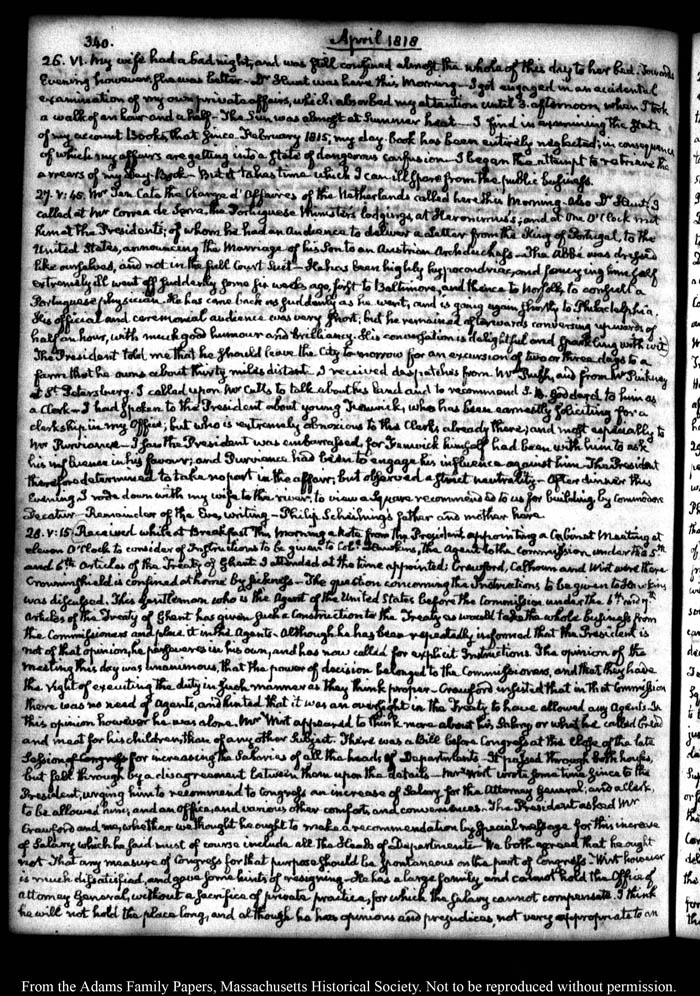 340.
April 1818
26. VI. My wife had a bad night, and was still confined almost the whole of this day to her bed. Towards
Evening however, she was better — Dr Hunt was here this Morning — I got engaged in an accidental
examination of my own private affairs, which absorbed my attention until 3. afternoon, when I took
a walk of an hour and a half — The Sun was almost at Summer heat — I find in examining the State
of my account Books, that since February 1815, my day book has been entirely neglected; in consequence
of which my affairs are getting into a State of dangerous confusion — I began the attempt to retrieve the
arrears of my Day-Book — But it takes time which I can ill spare from the public business.
27. V: 45. Mr Ten Cate the Chargé d'Affaires of the Netherlands called here this Morning. Also Dr Hunt; I
called at Mr Correa de Serra, the Portuguese Minister's lodgings, at Heronimus's; and at One O'Clock met
him at the Presidents; of whom he had an Audience to deliver a Letter from the King of Portugal, to the
United States, announcing the Marriage of his Son to an Austrian Archduchess — The Abbé was dressed
like ourselves, and not in the full Court Suit — He has been highly hypocondriac, and fancying himself
extremely ill went off suddenly some six weeks ago, first to Baltimore, and thence to Norfolk, to consult a
Portuguese physician. He has come back as suddenly as he went; and is going again shortly to Philadelphia.
His official and ceremonial audience was very short; but he remained afterwards conversing upwards of
half an hour, with much good humour and brilliancy. His conversation is delightful and sparkling with wit.
The President told me that he should leave the City to-morrow for an excursion of two or three days to a
farm that he owns about thirty miles distant. I received despatches from Mr Rush, and from Mr Pinkney
at St. Petersburg. I called upon Mr Cutts to talk about his land and to recommend Goddard to him as
a Clerk — I had spoken to the President about young Fenwick, who has been earnestly soliciting for a
clerkship in my Office; but who is extremely obnoxious to the Clerks already there; and most especially to
Mr Purviance — I saw the President was embarrassed, for Fenwick himself had been with him to ask
his influence in his favour; and Purviance had been to engage his influence against him. The President
therefore determined to take no part in the affair; but observed a strict neutrality — After dinner this
Evening, I rode down with my wife to the river, to view a Square recommended to us for building by Commodore
Decatur — Remainder of the Eve, writing — Philip father and mother here.
28. V: 15. Received while at Breakfast this morning a Note from the President appointing a Cabinet Meeting at
eleven O'Clock to consider of Instructions to be given to Coll. Hawkins, the Agent to the Commission under the 5th
and 6th Articles of the Treaty of Ghent. I attended at the time appointed: Crawford, Calhoun and Wirt were there
Crowninshield is confined at home by sickness — The question concerning the Instructions to be given to Hawkins
was discussed. This Gentleman who is the Agent of the United States before the Commission under the 6th and 7th
Articles of the Treaty of Ghent has given such a Construction to the Treaty as would take the whole business from
the Commissioners and place it in the Agents — Although he has been repeatedly informed that the President is
not of that opinion, he perseveres in his own, and has now called for explicit Instructions. The opinion of the
meeting this day was unanimous, that the power of decision belonged to the Commissioners, and that they have
the right of executing the duty in such manner as they think proper — Crawford insisted that in that Commission
there was no need of Agents, and hinted that it was an oversight in the Treaty to have allowed any Agents. In
this opinion however he was alone. Mr Wirt appeared to think more about his Salary or what he called bread
and meat for his children, than of any other Subject. There was a Bill before Congress at the close of the late
Session of Congress for increasing the Salaries of all the heads of Departments — It passed through both houses,
but fell through by a disagreement between them upon the details — Mr Wirt wrote some time since to the
President, urging him to recommend to Congress an increase of Salary for the Attorney General; and a Clerk,
to be allowed him; and an office, and various other comforts and conveniences. The President asked Mr
Crawford and me, whether we thought he ought to make a recommendation by special message for this increase
of Salary which he said must of course include all the Heads of Departments — We both agreed that he ought
not — That any measure of Congress for that purpose should be spontaneous on the part of Congress — Wirt however
is much dissatisfied, and gave some hints of resigning — He has a large family, and cannot hold the Office of
Attorney General, without a Sacrifice of private practice, for which the Salary cannot compensate. I think
he will not hold the place long, and although he has opinions and prejudices, not very appropriate to an
From the Adams Family Papers, Massachusetts Historical Society. Not to be reproduced without permission.